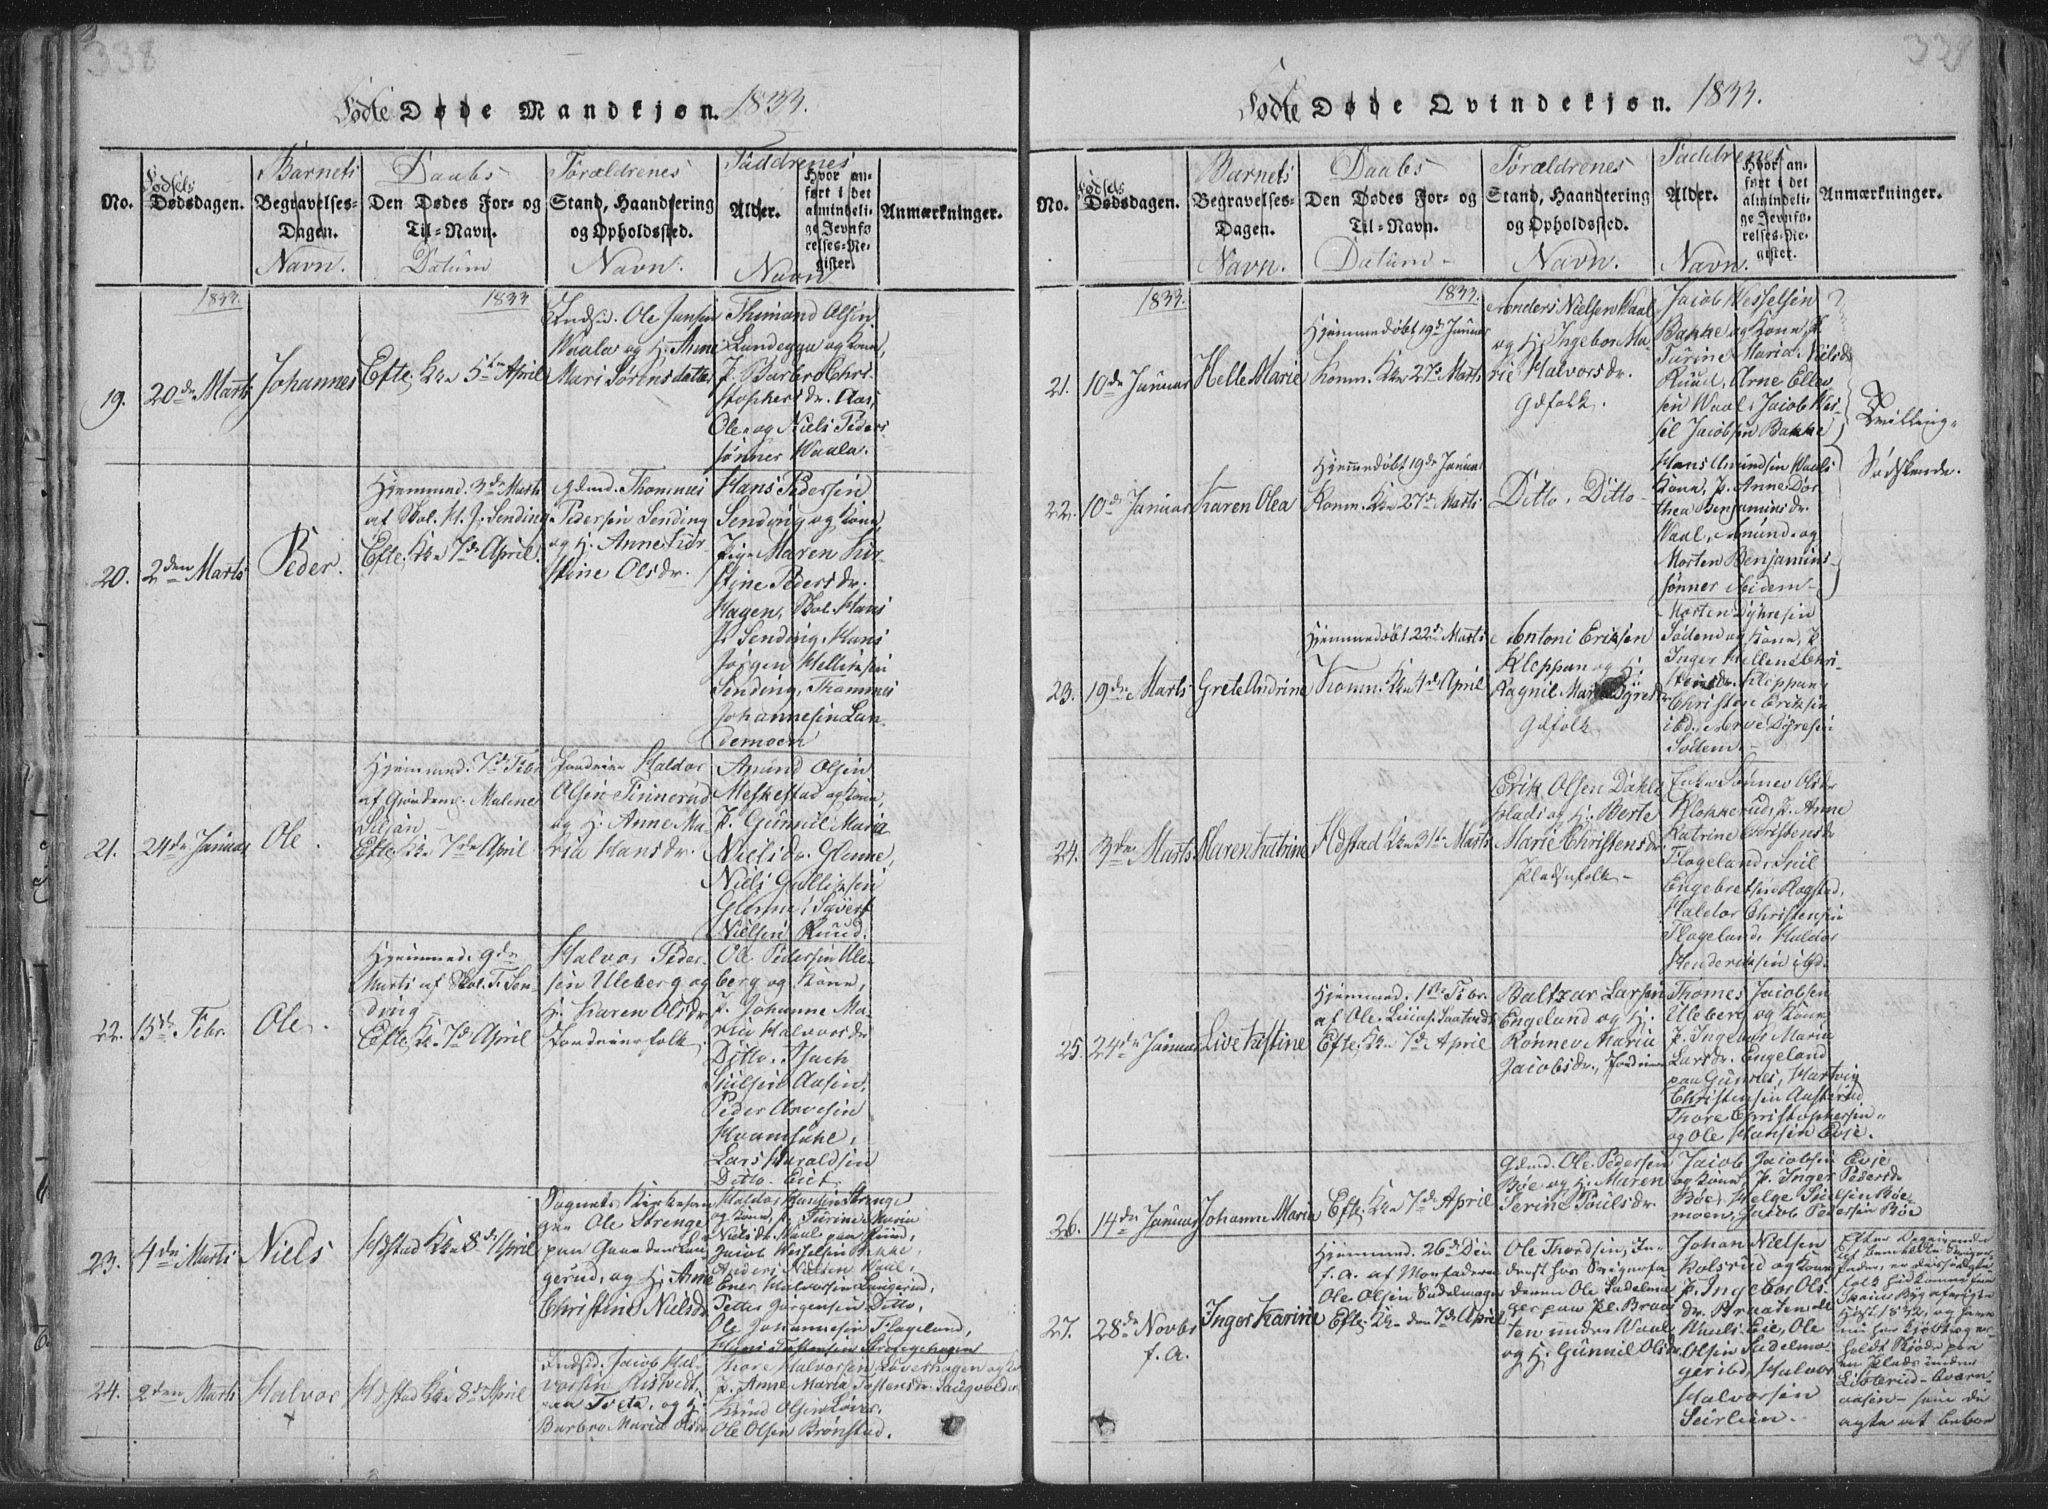 338
Fødte Døde Mandkjøn. 1833.
No.
Fødsels
Dødsdagen.
Barnets
Begravelses-
Dagen.
Navn.
Daabs
Den Dødes For- og
Til-Navn.
Datum
Forældrenes
Stand, Haandtering
og Opholdssted.
Navn.
Faddrenes
Alder.
Navn.
Hvor an-
ført i det
almindeli-
ge Jevnfø-
relses-Re-
gister.
Anmærkninger.
1833.
1833
19.
20de Marts
Johannes
Efte, Kke 5te April
Indsid. Ole Jansen
Waala og H. Anne
Mari Sørensdatter
Thimand Olsen
Lundegga og Kone,
P. Barbro Chri-
stophersdr. Aas,
Ole og Niels Peder-
sønner Waala.
20.
2den Marts
Peder.
Hjemmed. 3de Marts
af Skol. H. J. Sending
Efte, Kke 7de April.
Gdmd. Thommes
Pedersen Sending
og H. Anne Kir-
stine Olsdr.
Hans Pedersen
Sending og Kone,
Pige Maren Kir-
stine Pedersdr.
Hagen, Skol. Hans
J. Sending, Hans
Jørgen Helliksen
Sending, Thommes
Johannesen Lan-
demoen
21.
24de Januar
Ole.
Hjemmed. 7de Febr.
af Gjordem. Malene
Siljan
Efte, Kke 7de April
Jordeier Haldor
Olsen Tinnerud
og H. Anne Ma-
ria Hansdr.
Amund Olsen
Meskestad og Kone,
P. Gunnil Marie
Nielsdr. Glenne,
Niels Gulliksen
Glenne, Syvert
Nielsen Ruud.
22.
15de Febr.
Ole.
Hjemmed. 9de
Marts af Skol. T. Sen-
ding
Efte, Kke 7de April
Halvor Peder-
sen Uleberg og
H. Karen Olsdr.
Jordeierfolk.
Ole Pedersen Ule-
berg og Kone,
P. Johanne Ma-
ria Halvorsdr.
Ditto, Isach
Siulsen Aasen,
Peder Arvesen
Kvamsuhle,
Lars Haraldsen
Ditto Eiet.
23.
4de Marts
Niels
Hedstad Kke 8de April
Sognets Kirkesan-
ger Ole Strenge
paa Gaarden Lan-
gerud, og H. Anne
Christine Nielsdr.
Haldor Hansen Strenge
og Kone, P. Turine Maria
Nielsdr. Waal paa Ruud,
Jacob Wesselsen Bakke,
Anders Nielsen Waal,
Ener Halvorsen Langerud,
Petter Jørgensen Ditto,
Ole Johannesen Flageland,
24.
2den Marts
Halvor
Hedstad Kke 8de April
Indsid. Jacob Hal-
vorsen Ristvedt,
paa Tveta, og H.
Barbro Maria Olsdr.
Thore Halvorsen Løverhagen og Kone
P. Anne Maria Tostensdr. Saugvolden
Knud Olsen Løver,
Ole Olsen Brønstad.
339
Fødte Døde Qvindekjøn. 1833.
No.
Fødsels
Dødsdagen.
Barnets
Begravelses-
Dagen.
Navn.
Daabs
Den Dødes For- og
Til-Navn.
Datum
Forældrenes
Stand, Haandtering
og Opholdssted.
Navn.
Faddrenes
Alder.
Navn.
Hvor an-
ført i det
almindeli-
ge Jevnfø-
relses-Re-
gister.
Anmærkninger.
1833.
1833.
21.
10de Januar
Helle Marie
Hjemmedøbt 19de Januar
Komn. Kke 27de Marts
Anders Nielsen Waal
og H. Ingebor Ma-
rie Halvorsdr.
Gdfolk.
Jacob Wesselsen
Bakke og Kone, P.
Turine Maria Nielsdr.
Ruud, Arne Ellev-
sen Waal, Jacob Wes-
sel Jacobsen Bakke
Tvilling-
Sødskende.
22.
10de Januar
Karen Olea
Hjemmedøbt 19de Januar
Komn. Kke 27de Marts
Ditto, Ditto
Hans Amundsen Waals
Kone, P. Anne Dor-
thea Benjaminsdr.
Waal, Amund og
Morten Benjamins-
sønner ibidem
23.
19de Marts
Grete Andrine
Hjemmedøbt 22de Marts
Komn. Kke 4de April
Antoni Eriksen
Kleppan og H.
Ragnil Marie Dyresdr.
Gdfolk
Morten Dyresen
Sødem og Kone, P.
Inger Hellene Chri-
stensdr. Kleppan,
Christen Eriksen
ibd., Arve Dyresen
Sødem.
24.
3de Marts
Maren Katrine
Hedstad Kke 31te Marts
Erik Olsen Dahls
Plads og H. Berte
Marie Christensdr.
Pladsefolk
Enke Rønnev Olsdr.
Klokkerud, P. Anne
Katrine Christensdr.
Flageland, Siul
Engebretsen Rogstad,
Haldor Christensen
Flageland, Haldor
Henderiksen ibd.
25.
24de Januar
Live Kistine
Hjemmed. 1ste Febr.
af Ole Lucas. Saatvedt
Efte, Kke 7de April
Baltzar Larsen
Engeland og H.
Rønnev Maria
Jacobsdr., Jordeier
Thomes Jacobsen
Uleberg og Kone
P. Ingeborg Maria
Larsdr. Engeland
paa Gunnes, Hartvig
Christensen Austerud,
Thore Christophersen
og Ole Hansen Evje.
26.
14de Januar
Johanne Maria
Efte, Kke 7de April
Gdmd. Ole Pedersen
Bøe og H. Maren
Serine Poulsdr.
Jacob Jacobsen Evje
og Kone, P. Inger Pedersdr.
Bøe, Helge Siulsen Bøe-
moen, Jacob Pedersen Bøe
27.
28de Novbr.
f. A.
Inger Karine
Hjemmed. 26de Dec.
f. A. af Morfaderen
Ole Olsen Sadelmager
Efte, Kke den 7de April
Ole Thordsen, In-
derst hos Svigerfa-
deren Ole Sadelma-
ger paa Pl. Braa-
ten under Waal
og H. Gunnil Olsdr.
Johan Nielsen
Kolsrud og Kone
P. Ingebor Ols-
dr. Braaten,
Waals Eie, Ole
Olsen Sadelma-
geribd., Halvor
Halvorsen
Seirlien
Efter Opgivende